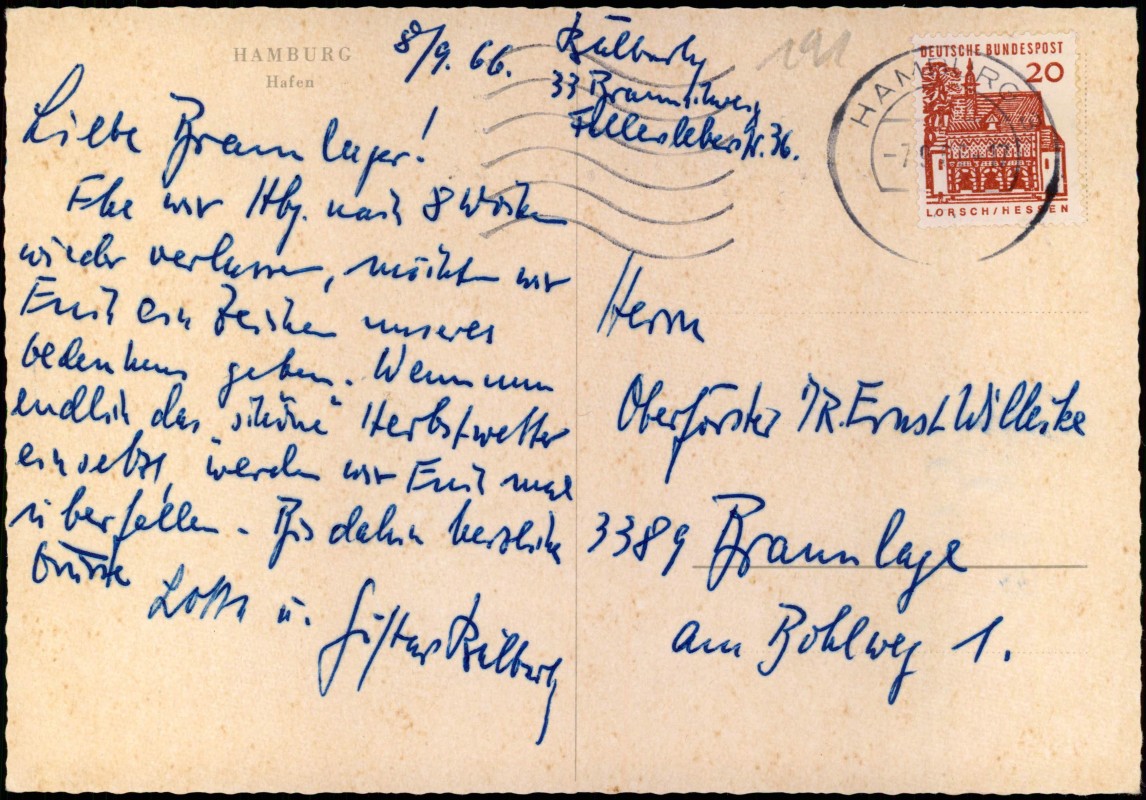 HAMBURG
Hafen
/9. 66.
33 Braunschweig
Fallersleberstr. 36.
DEUTSCHE BUNDESPOST
20
LORSCH/HESSEN
HAMBURG
-7.9
191
Liebe Braunlager!
Ehe wir Hbg. nach 8 Wochen
wieder verlassen, möchten wir
Euch ein Zeichen unseres
Gedenkens geben. Wenn nun
endlich das "schöne" Herbstwetter
einsetzt, werden wir Euch mal
überfallen. Bis dahin herzliche
Grüsse
Lotte u. Gustav
Herrn
Oberförster i/R. Ernst Willeike
3389 Braunlage
am Bohlweg 1.